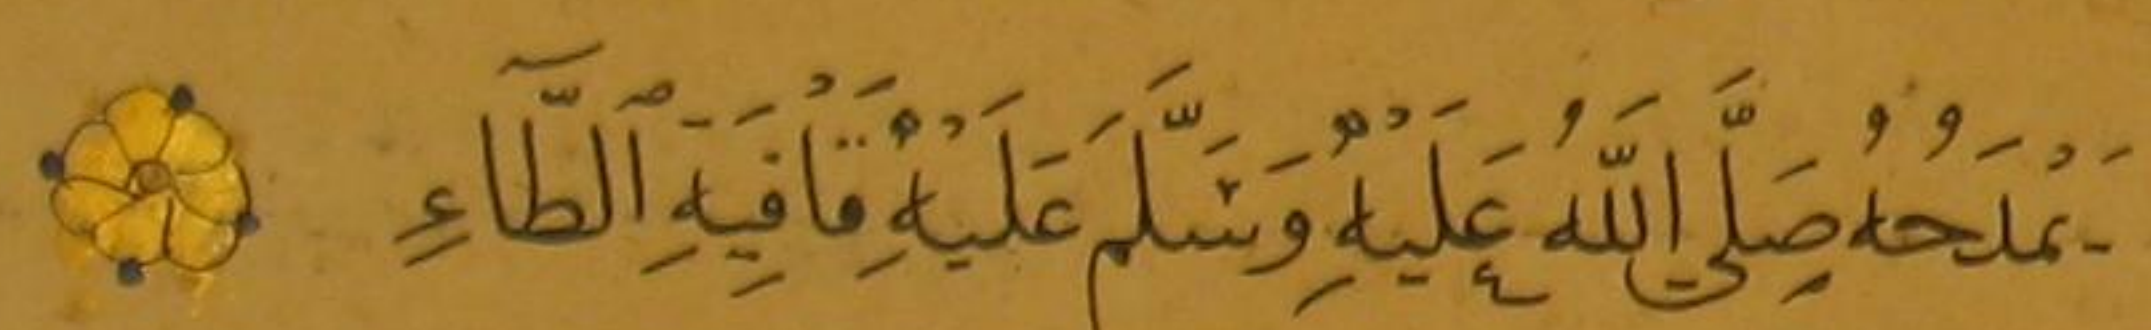 يَمْدَحُهُ صَلَّى اللَّهُ عَلَيْهِ وَسَلَّمَ عَلَيْهِ قَافِيَةِ ٱلطَّآءِ